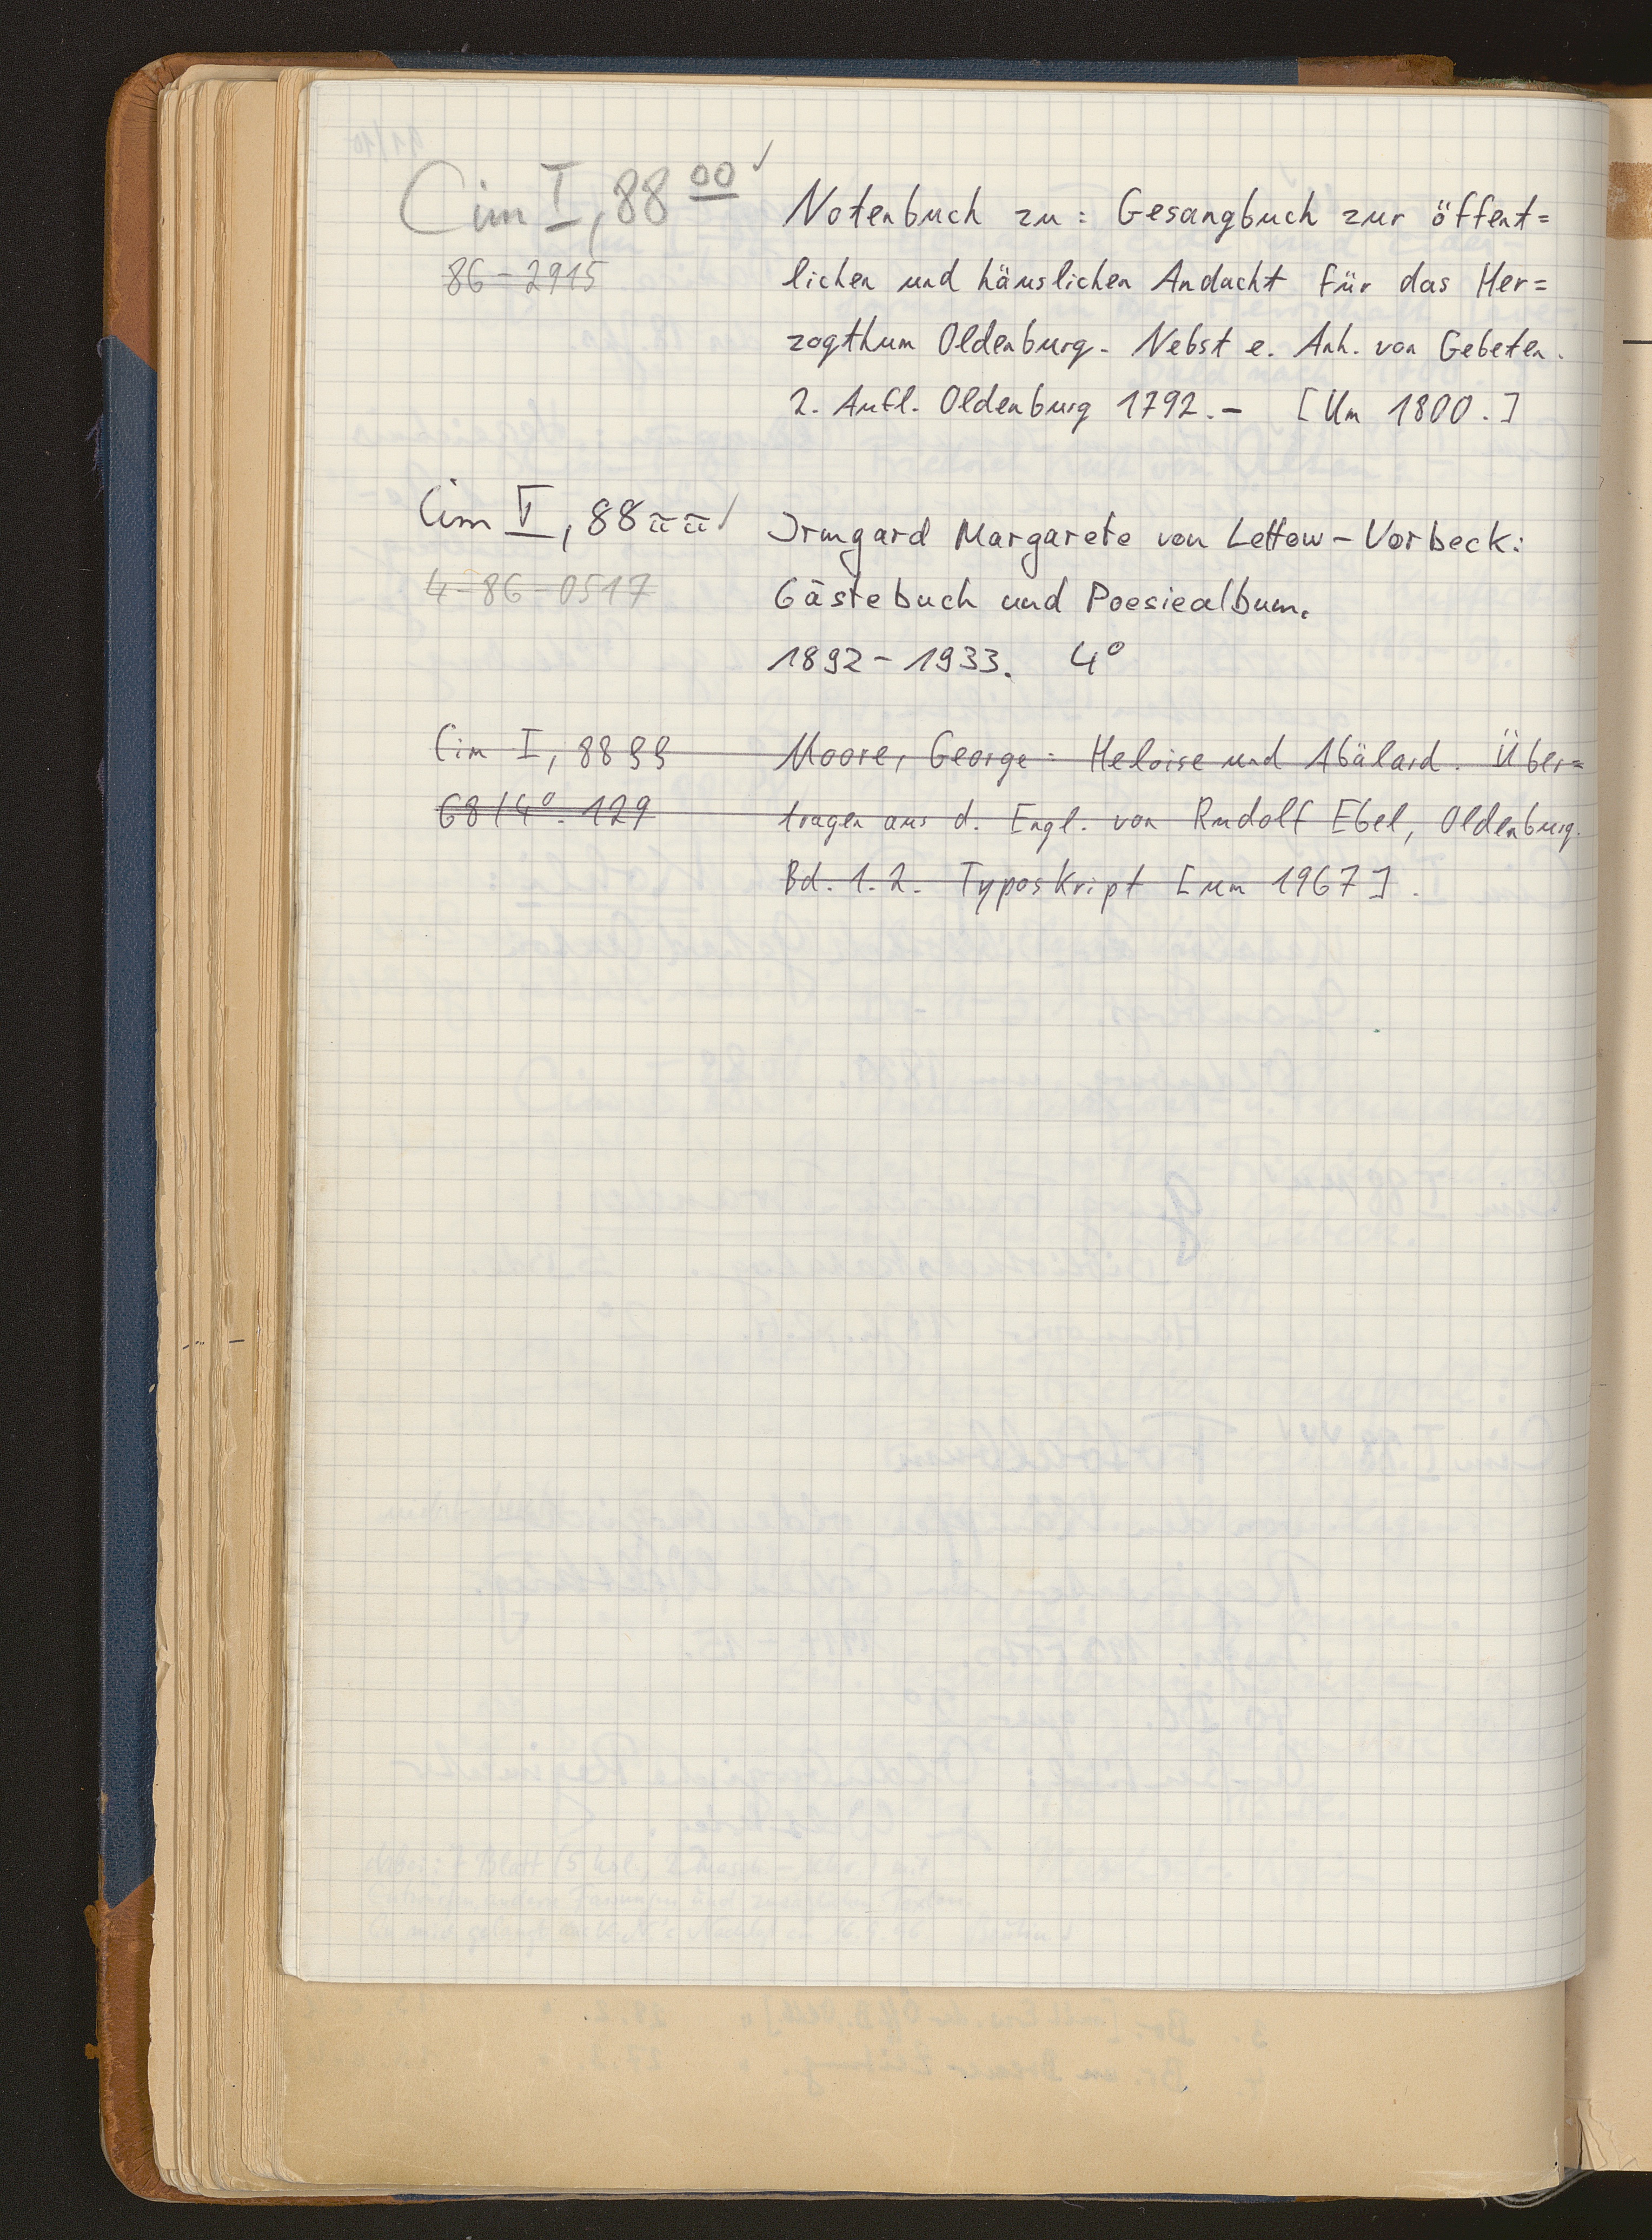 Cim I, 88 oo ✓
86-2915
Notenbuch zu: Gesangbuch zur öffent=
lichen und häuslichen Andacht für das Her=
zogthum Oldenburg. Nebst e. Anh. von Gebeten.
2. Aufl. Oldenburg 1792.- [Um 1800.]
Cim V, 88 ππ ✓
4-86-0517
Irmgard Margarete von Lettow-Vorbeck:
Gästebuch und Poesiealbum.
1892-1933. 4°
Cim I, 88 ϱϱ
68/4°. 129
Moore, George: Heloise und Abälard. Über=
tragen aus d. Engl. von Rudolf Ebel, Oldenburg.
Bd. 1.2. Typoskript [um 1967].